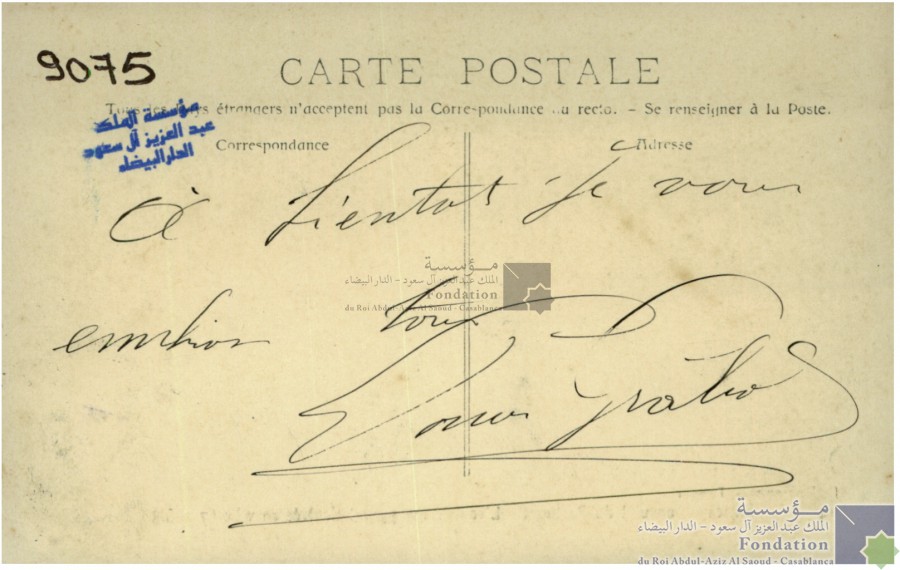 9075
CARTE POSTALE
Tous les pays étrangers n'acceptent pas la Correspondance au recto. - Se renseigner à la Poste.
مؤسسة الملك
عبد العزيز آل سعود
الدار البيضاء
Correspondance
Adresse
à bientot je vous
مؤسسة
الملك عبد العزيز آل سعود - الدار البيضاء
Fondation
du Roi Abdul-Aziz Al Saoud - Casablanca
tous
Louis
مؤسسة
الملك عبد العزيز آل سعود - الدار البيضاء
Fondation
du Roi Abdul-Aziz Al Saoud - Casablanca